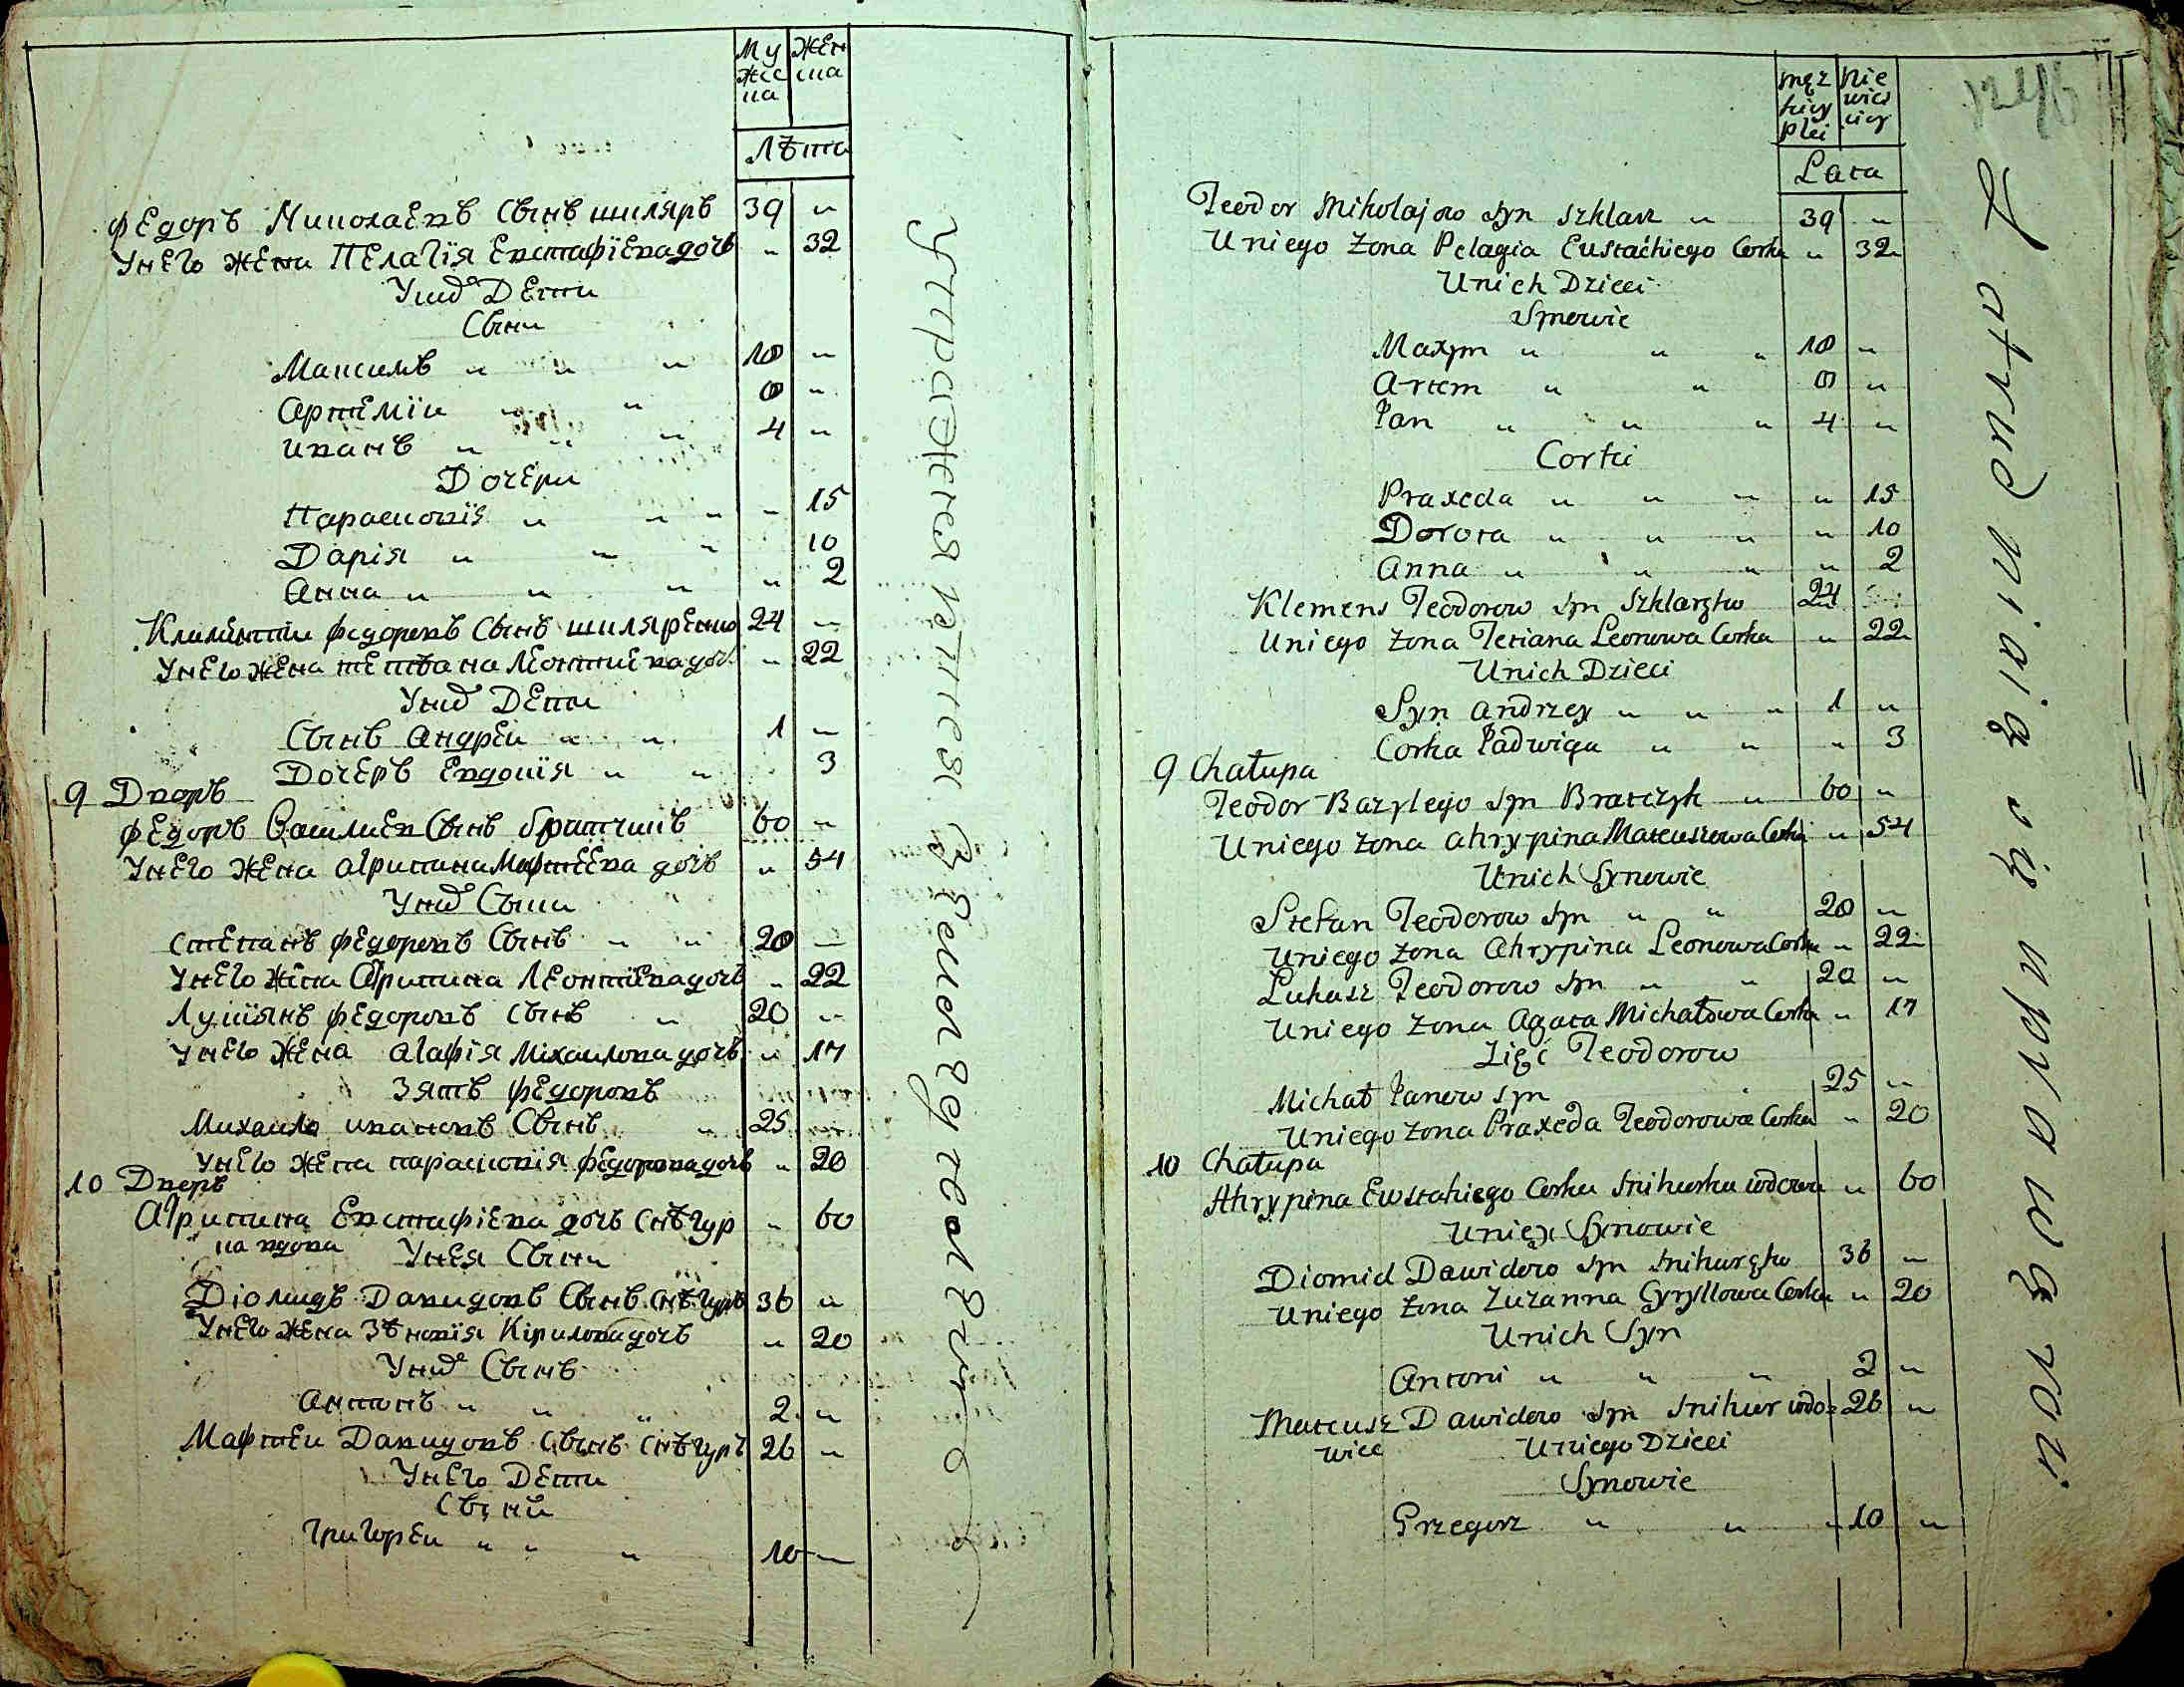 Му Жен
жес ска
ка
Лѣта
Федоръ Николаевъ Сынъ шкляръ 39 "
У него жена Пелагїя Евстафїева дочь " 32
У них Дети
Сыни
Максимъ " " " 18 "
Артемїи " " 8 "
иванъ " " " 4 "
Дочери
Парасковїя " " " " 15
Дарія " " " 10
Анна " " " " 2
Климинтїи федоровъ Сынъ шкляренко 24 "
У него жена тетяна Леонтиева доч. " 22
У них Дети
Сынъ Андреи " " 1 "
Дочеръ Евдокїя " " 3
9 Дворъ
федоръ Василиев Сынъ братчикъ 60 "
У него жена агрипина Мафтеева дочь " 54
У них Сыни
степанъ федоровъ Сынъ " " 28 "
У него жена Агрипина Леонтїева дочь " 22
Лукїянъ федоровъ сынъ " 20 "
У него жена агафїя Міхаилова дочь " 17
Зять федоровъ
Михаило ивановъ Сынъ " 25 "
У него жена парасковїя федорова дочь " 20
10 Дворъ
Агрипина Евстафїева дочь Снѣгур " 60
ка вдова У нея Сыни
Діомидъ Давидовъ Сынъ Снѣгуръ 36 "
У него жена Зѣновїя Кірилова дочь " 20
У них Сынъ
Антонъ " " " 2 "
Мафтеи Давидовъ Сынъ Снѣгуръ 26 "
У него Дети
Сыни
Григореи " " " 10 "
męz Nie
kiey wies
płci ciey
Lata
Teodor Mikolajow syn szklarz " 39 "
U niego Zona Pelagia Eustachiego Corka " 32
U nich Dzieci
Synowie
Maxym " " " 18 "
Artem " " 8 "
Jan " " " 4 "
Corki
Praxeda " " " " 15
Dorota " " " " 10
Anna " " " " 2
Klemens Teodorow syn Szklarzko 24
U niego Zona Tetiana Leonowa Corka " 22
U nich Dzieci
Syn Andrzey " " " 1 "
Corka Jadwiga " " " 3
9 Chałupa
Teodor Bazylego syn Bratczyk " 60 "
U niego Zona Ahrypina Mateuszowa Corka " 54
U nich Synowie
Stefan Teodorow syn " " 28 "
U niego Zona Ahrypina Leonowa Corka " 22
Lukasz Teodorow syn " " 20 "
U niego Zona Agata Michałowa Corka " 17
Zięć Teodorow
Michał Janow syn " 25 "
U niego Zona Praxeda Teodorowa Corka " 20
10 Chałupa
Ahrypina Ewstahiego Corka Snihurka wdowa " 60
U niey Synowie
Diomid Dawidow syn Snihurzko 36 "
U niego Zona Zuzanna Gyryllowa Corka " 20
U nich Syn
Antoni " " " 2 "
Mateusz Dawidow syn Snihur wdo= 26 "
wiec U niego Dzieci
Synowie
Grzegorz " " " 10 "